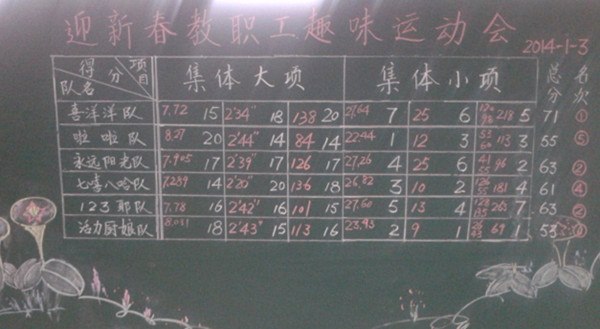 迎新春教职工趣味运动会
2014-1-3
得分 项目 队名 集体大项 集体小项 总分 名次
喜洋洋队 7.72 15 2'34" 18 138 20 27.64 7 25 6 218 5 71 ①
啦啦队 8.27 20 2'44" 14 84 14 22.44 1 12 3 113 3 55 ⑤
永远阳光队 7.905 17 2'39" 17 126 17 27.26 4 25 6 96 2 63 ②
七喜八哈队 7.289 14 2'20" 20 136 18 26.82 3 10 2 181 4 61 ④
123耶队 7.78 16 2'42" 16 101 15 27.60 5 13 4 263 7 63 ②
活力厨娘队 8.031 18 2'43" 15 113 16 23.93 2 9 1 69 1